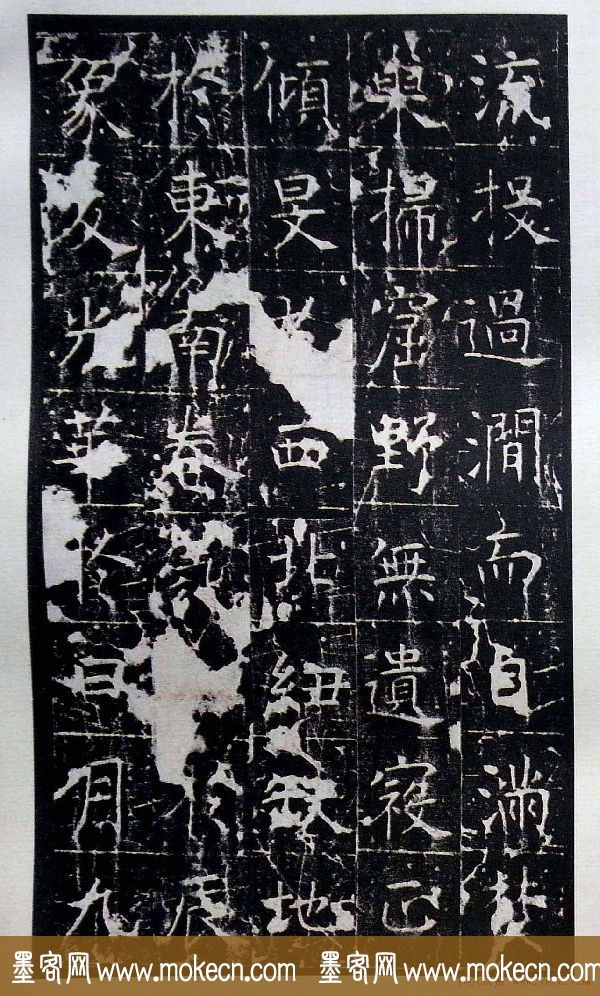 流投過澗而自滿焚
巢掃窟野無遺寇正
傾旻 西北紐缺地
於東南卷 於辰
象反光華於日月九
墨客网 www.mokecn.com 墨客网 www.mokecn.com